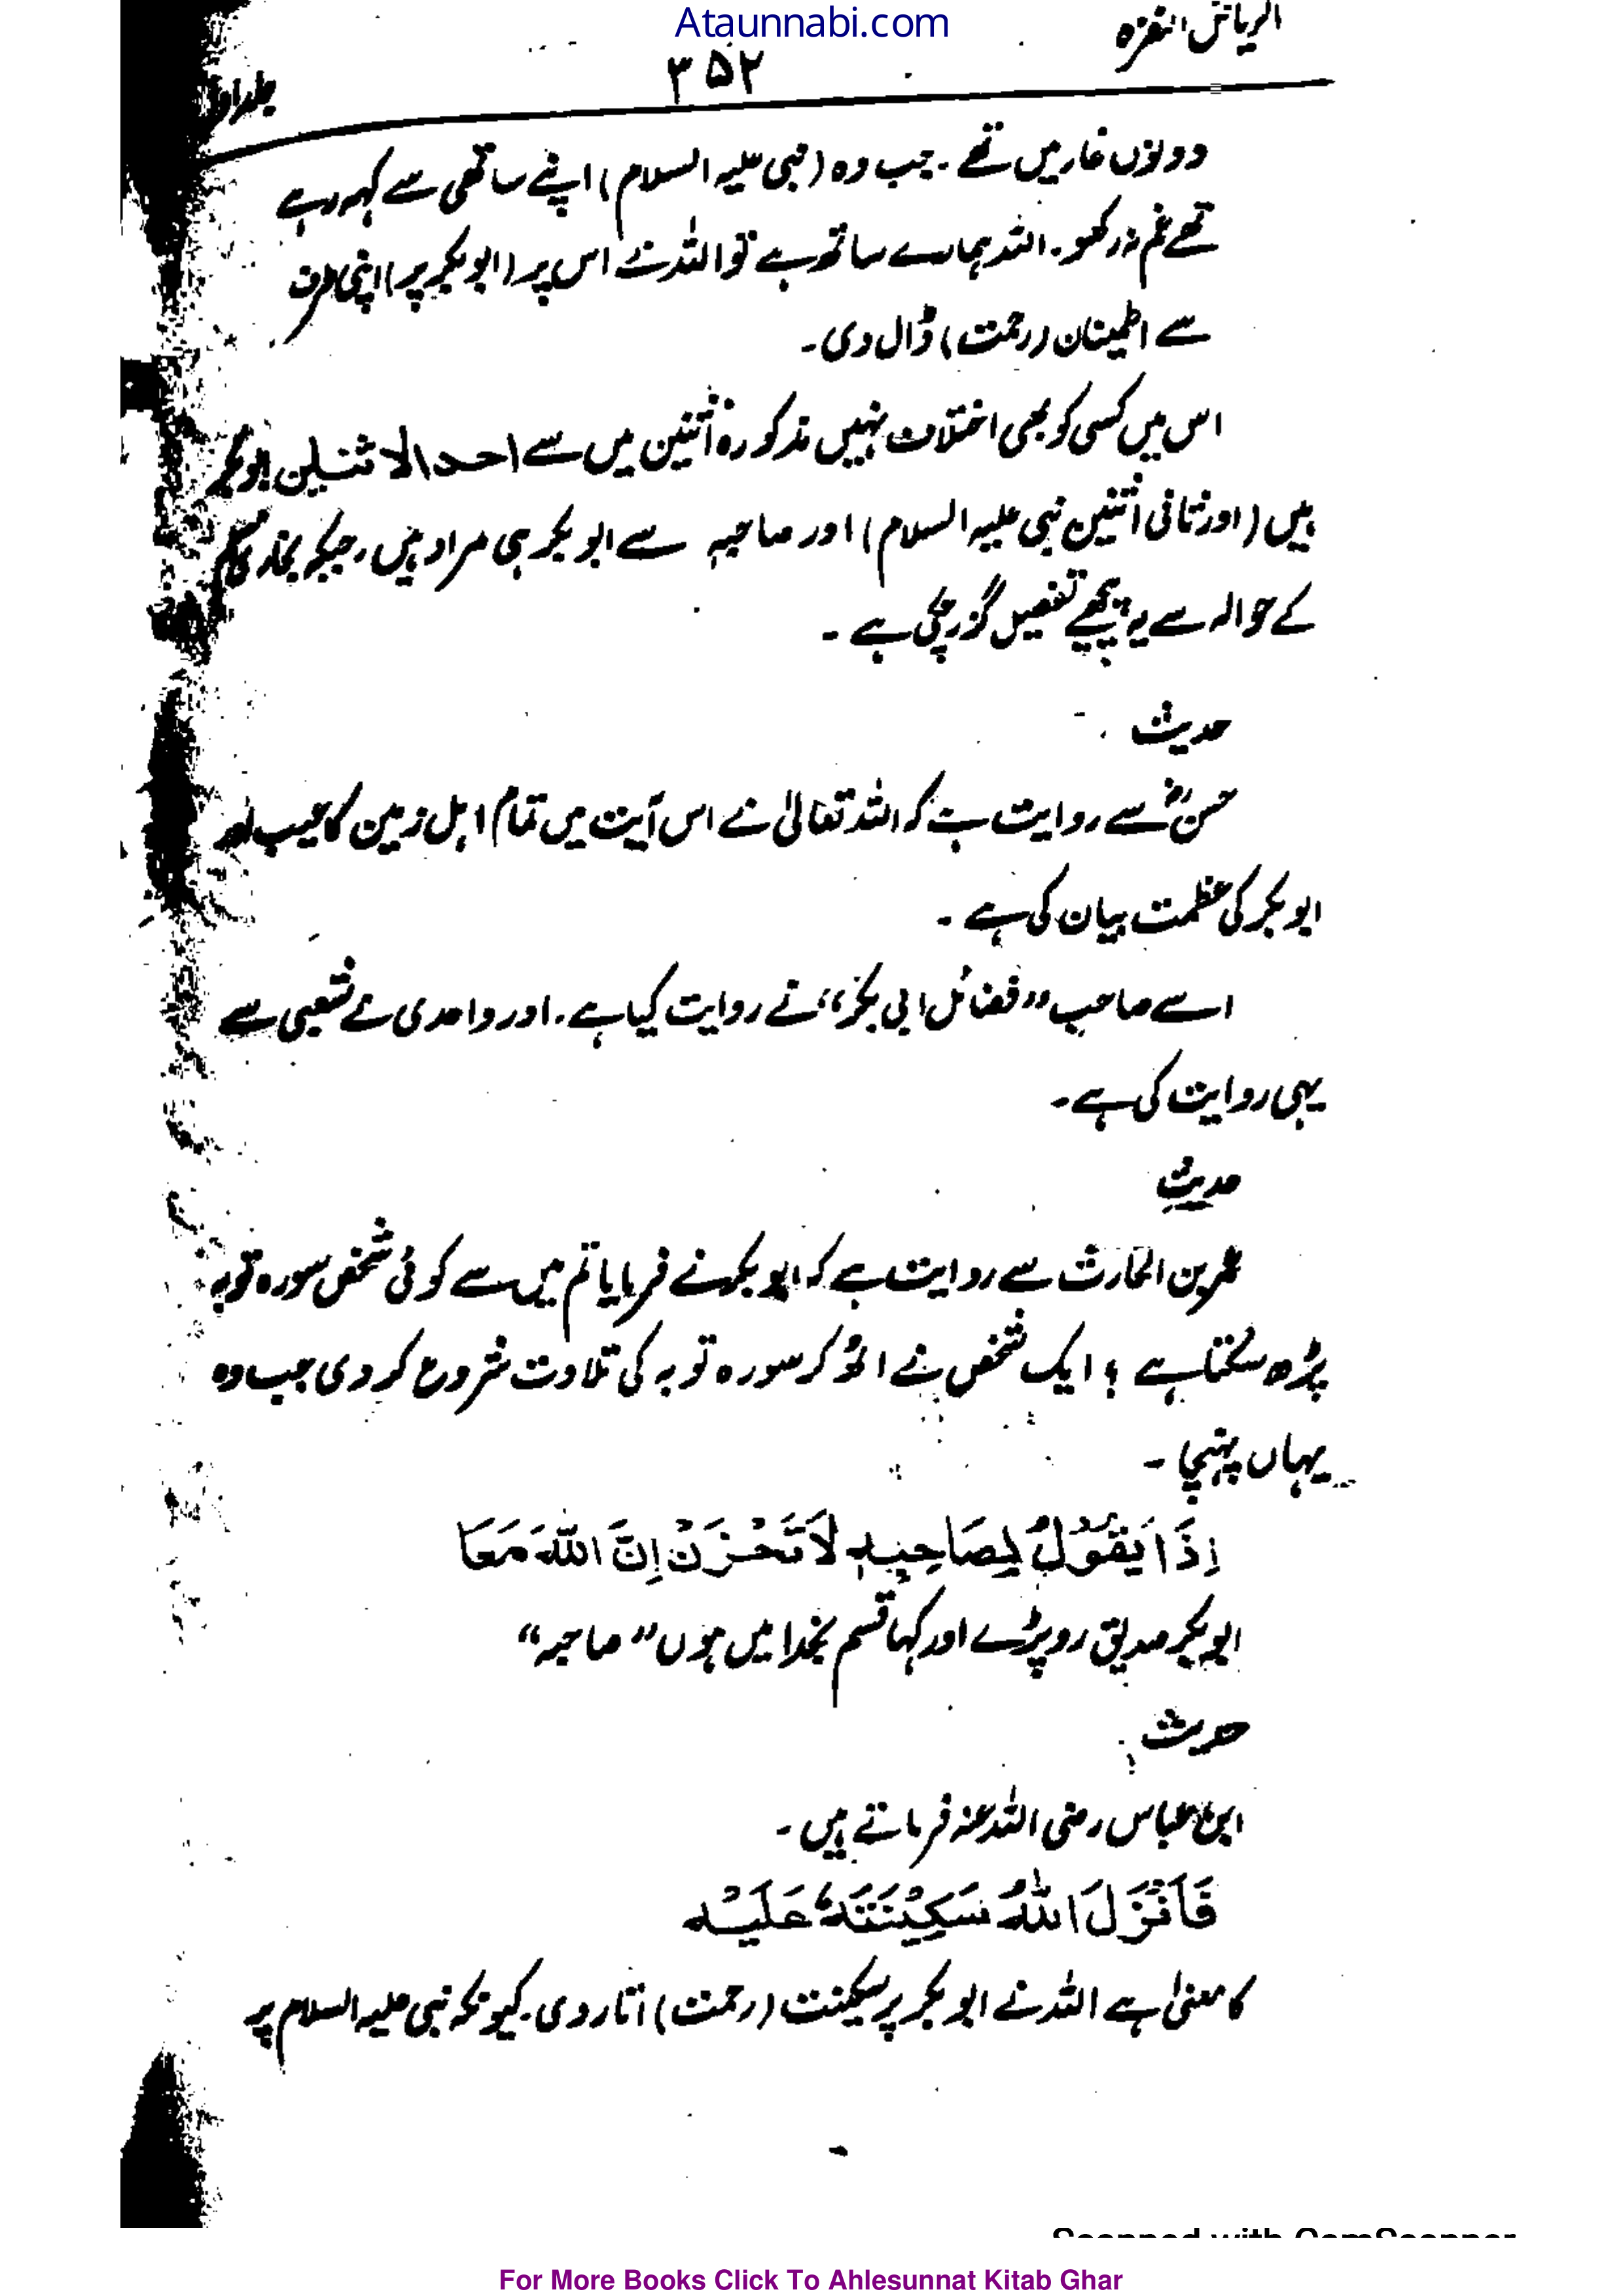 Ataunnabi.com
الریاض النضرہ
۳۵۲
جلد اول
دونوں غار میں تھے۔ جب وہ (نبی علیہ السلام) اپنے ساتھی سے کہہ رہے
تھے غم نہ رکھو۔ اللہ ہمارے ساتھ ہے تو اللہ نے اس پر (ابوبکر پر) اپنی طرف
سے اطمینان (رحمت) ڈال دی۔
اس میں کسی کو بھی اختلاف نہیں مذکورہ اثنین میں سے احد الاثنین ابوبکر
ہیں (اور ثانی اثنین نبی علیہ السلام) اور صاحبہ سے ابوبکر ہی مراد ہیں۔ جبکہ
کے حوالہ سے یہ پیچھے تفصیل گزر چکی ہے۔
حدیث
حسنؓ سے روایت ہے کہ اللہ تعالیٰ نے اس آیت میں تمام اہل زمین کا عیب اور
ابوبکر کی عظمت بیان کی ہے۔
اسے صاحب ”فضائل ابی بکرؓ“ نے روایت کیا ہے۔ اور واحدی نے شعبی سے
یہی روایت کی ہے۔
حدیث
عمر بن الحارث سے روایت ہے کہ ابوبکر نے فرمایا تم میں سے کوئی شخص سورہ توبہ
پڑھ سکتا ہے ؟ ایک شخص نے اٹھ کر سورہ توبہ کی تلاوت شروع کر دی جب وہ
یہاں پہنچا۔
اِذَا یَقُوْلُ لِصَاحِبِہٖ لَا تَحْزَنْ اِنَّ اللّٰہَ مَعَنَا
ابوبکر صدیق رو پڑے اور کہا قسم بخدا میں ہوں ”صاحبہ“
حدیث
ابن عباس رضی اللہ عنہ فرماتے ہیں۔
فَاَنْزَلَ اللّٰہُ سَکِیْنَتَہٗ عَلَیْہِ
کا معنیٰ ہے اللہ نے ابوبکر پر سکینت (رحمت) اتار دی۔ کیونکہ نبی علیہ السلام پر
Scanned with CamScanner
For More Books Click To Ahlesunnat Kitab Ghar